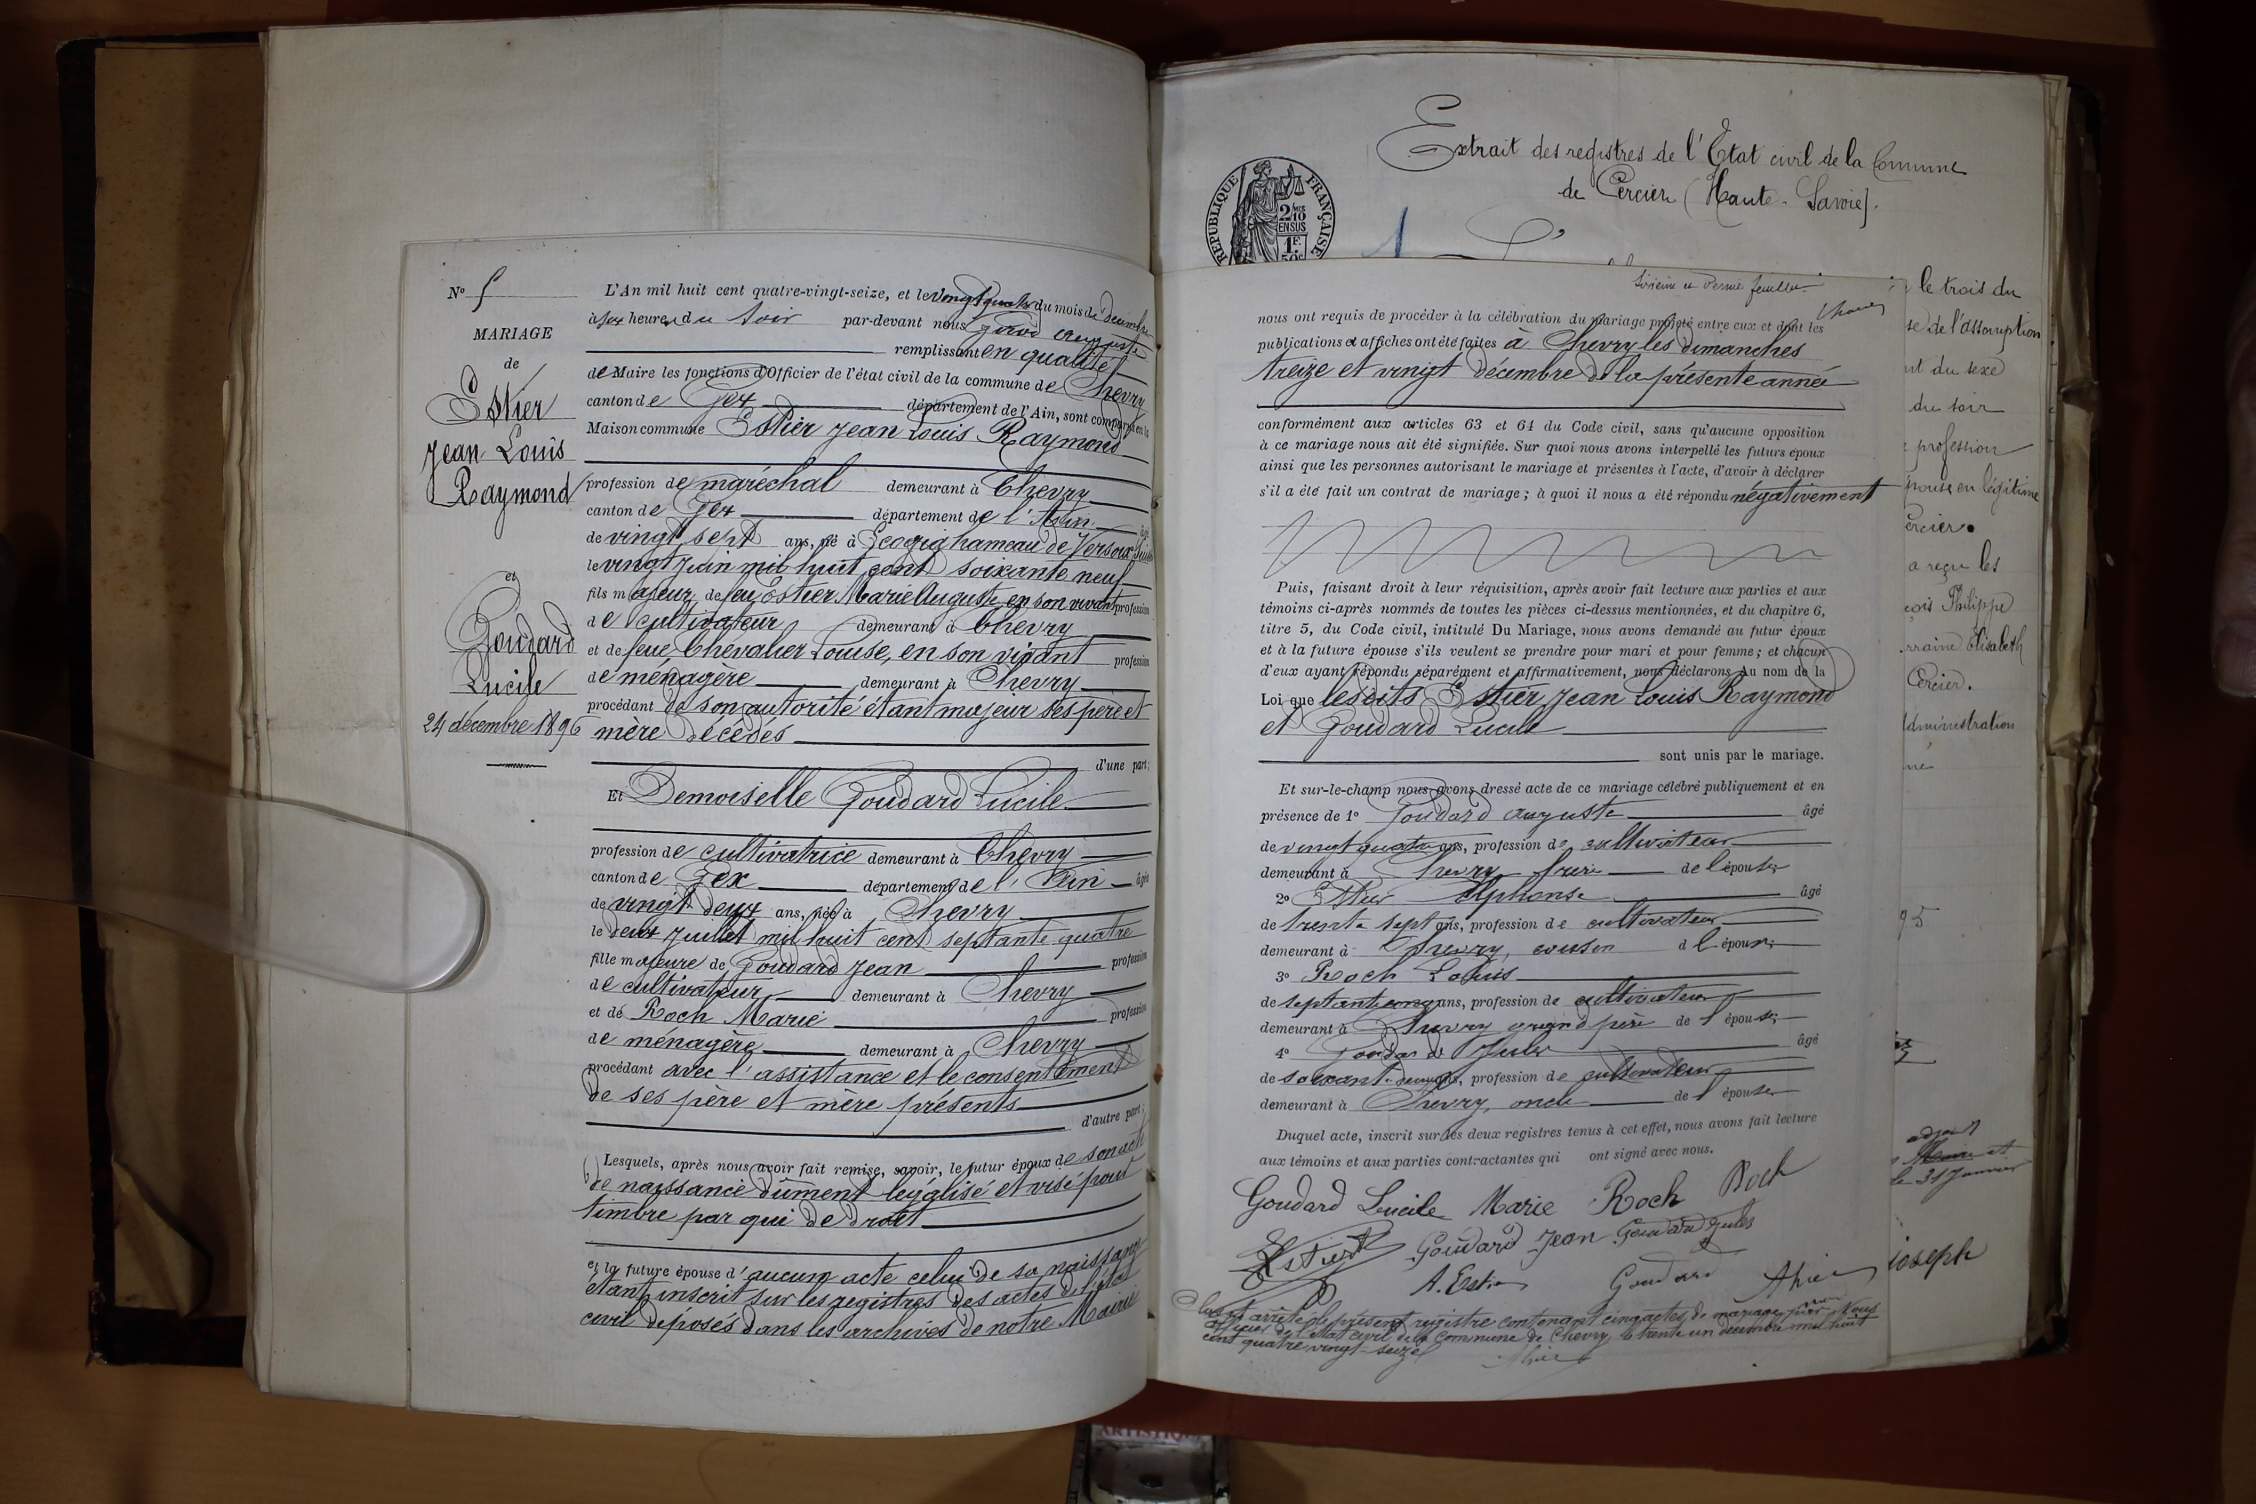 N° 5
MARIAGE
de
Estier
Jean Louis
Raymond
et
Goudard
Lucile
24 décembre 1896
L'An mil huit cent quatre-vingt-seize, et le vingt quatre du mois de décembre
à six heures du soir par-devant nous Girod auguste
remplissant en qualité
de Maire les fonctions d'Officier de l'état civil de la commune de Chevry
canton de Gex département de l'Ain, sont comparus en la
Maison commune Estier Jean Louis Raymond
profession de maréchal demeurant à Chevry
canton de Gex département de l'Ain âgé
de vingt sept ans, né à Ecogia hameau de Versoix Suisse
le vingt juin mil huit cent soixante neuf
fils majeur de feu Estier Marie Auguste, en son vivant profession
de cultivateur demeurant à Chevry
et de feue Chevalier Louise, en son vivant profession
de ménagère demeurant à Chevry
procédant de son autorité étant majeur ses père et
mère décédés
d'une part;
Et Demoiselle Goudard Lucile
profession de cultivatrice demeurant à Chevry
canton de Gex département de l'Ain âgée
de vingt deux ans, née à Chevry
le deux juillet mil huit cent septante quatre
fille majeure de Goudard Jean profession
de cultivateur demeurant à Chevry
et de Roch Marie profession
de ménagère demeurant à Chevry
procédant avec l'assistance et le consentement
de ses père et mère présents
d'autre part;
Lesquels, après nous avoir fait remise, savoir, le futur époux de son acte
de naissance dûment légalisé et visé pour
timbre par qui de droit
et la future épouse d'aucun acte celui de sa naissance
étant inscrit sur les registres des actes de l'état
civil déposés dans les archives de notre Mairie
Extrait des registres de l'Etat civil de la Commune
de Cercier (Haute-Savoie).
RÉPUBLIQUE FRANÇAISE
2/10
EN SUS
1F.
50c
1
feuillet
nous ont requis de procéder à la célébration du mariage projeté entre eux et dont les
publications et affiches ont été faites à Chevry les dimanches
treize et vingt décembre de la présente année
conformément aux articles 63 et 64 du Code civil, sans qu'aucune opposition
à ce mariage nous ait été signifiée. Sur quoi nous avons interpellé les futurs époux
ainsi que les personnes autorisant le mariage et présentes à l'acte, d'avoir à déclarer
s'il a été fait un contrat de mariage; à quoi il nous a été répondu négativement
Puis, faisant droit à leur réquisition, après avoir fait lecture aux parties et aux
témoins ci-après nommés de toutes les pièces ci-dessus mentionnées, et du chapitre 6,
titre 5, du Code civil, intitulé Du Mariage, nous avons demandé au futur époux
et à la future épouse s'ils veulent se prendre pour mari et pour femme; et chacun
d'eux ayant répondu séparément et affirmativement, nous déclarons Au nom de la
Loi que lesdits Estier Jean Louis Raymond
et Goudard Lucile
sont unis par le mariage.
Et sur-le-champ nous avons dressé acte de ce mariage célébré publiquement et en
présence de 1° Goudard auguste âgé
de vingt quatre ans, profession de cultivateur
demeurant à Chevry frère de l'épouse
2° Estier Alphonse âgé
de trente sept ans, profession de cultivateur
demeurant à Chevry, cousin de l'époux
3° Roch Louis
de septante cinq ans, profession de cultivateur
demeurant à Chevry grand père de l'épouse
4° Goudard Jules âgé
de soixante deux ans, profession de cultivateur
demeurant à Chevry, oncle de l'épouse
Duquel acte, inscrit sur les deux registres tenus à cet effet, nous avons fait lecture
aux témoins et aux parties contractantes qui ont signé avec nous.
Goudard Lucile Marie Roch Roch
Estier Goudard Jean Goudard Jules
A. Estier Goudard
Clos et arrêté le présent registre contenant cinq actes de mariage par Nous
officier de l'état civil de la Commune de Chevry, le trente un décembre mil huit
cent quatre vingt-seize
le trois du
de l'assomption
du sexe
du soir
profession
épouse en légitime
Cercier.
a reçu les
Philippe
Elisabeth
Cercier.
administration
95
adjoint
le 31 Janvier
Joseph